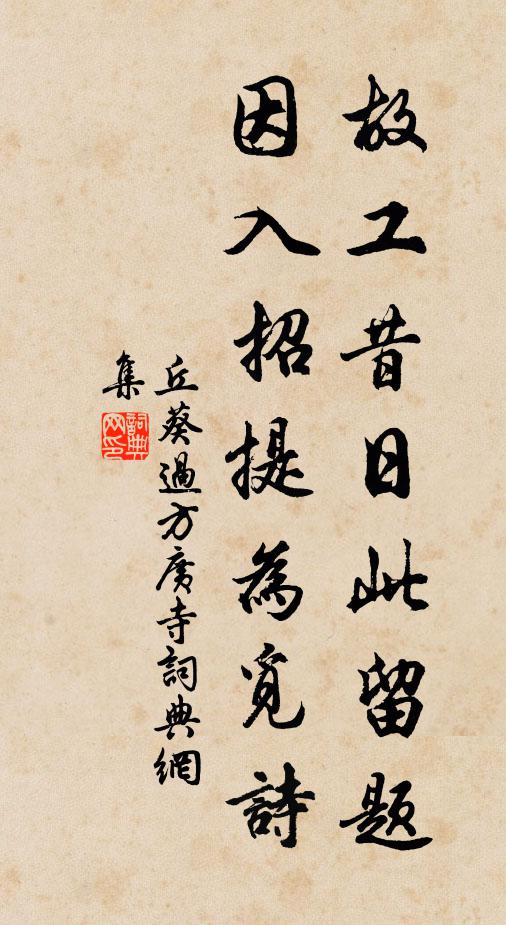 故工昔日此留題
因入招提為覓詩
丘葵過方廣寺詞典網
集
詞典
网印